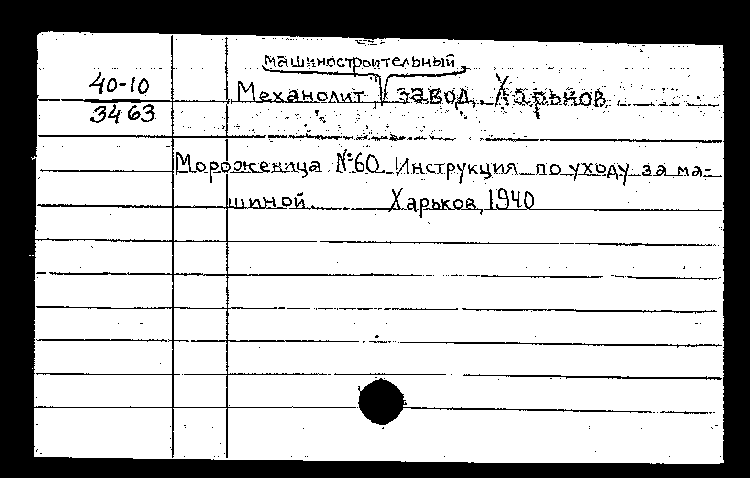 машиностроительный
40-10
Механолит, завод, Харьков
3463
Мороженица №60. Инструкция по уходу за ма-
шиной. Харьков, 1940